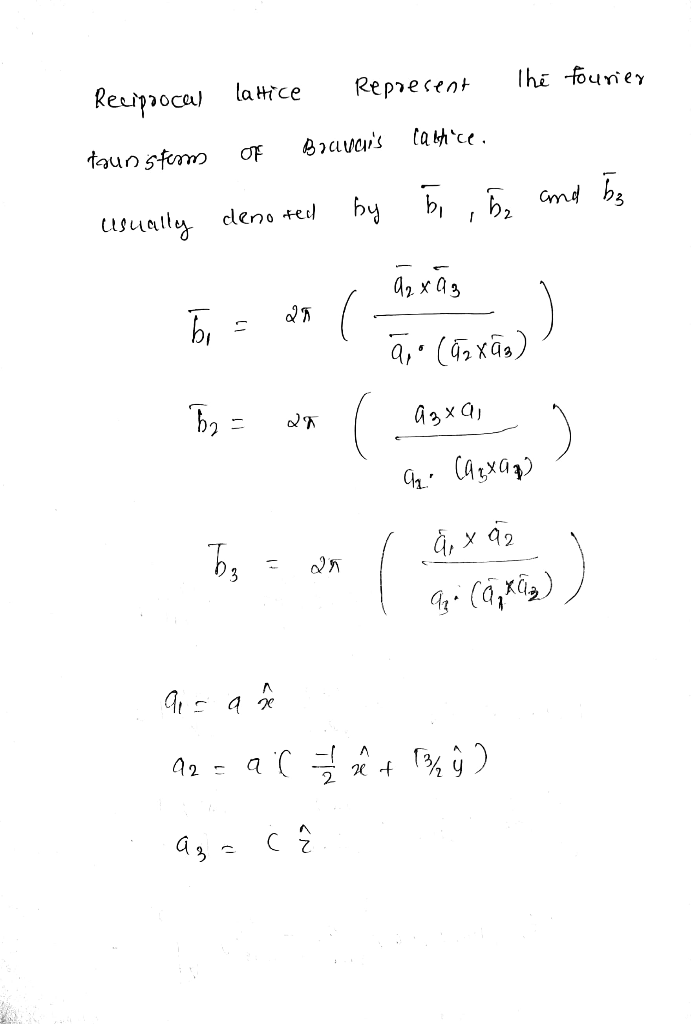 Reciprocal lattice Represent the fourier
transform OF Bravais lattice.
usually denoted by b̄₁ , b̄₂ and b̄₃
b̄₁ = 2π ( ā₂ x ā₃ / ā₁ · (ā₂ x ā₃) )
b̄₂ = 2π ( a₃ x a₁ / a₂ · (a₃ x a₁) )
b̄₃ = 2π ( ā₁ x ā₂ / a₃ · (ā₁ x ā₂) )
a₁ = a x̂
a₂ = a ( -1/2 x̂ + √3/2 ŷ )
a₃ = c ẑ